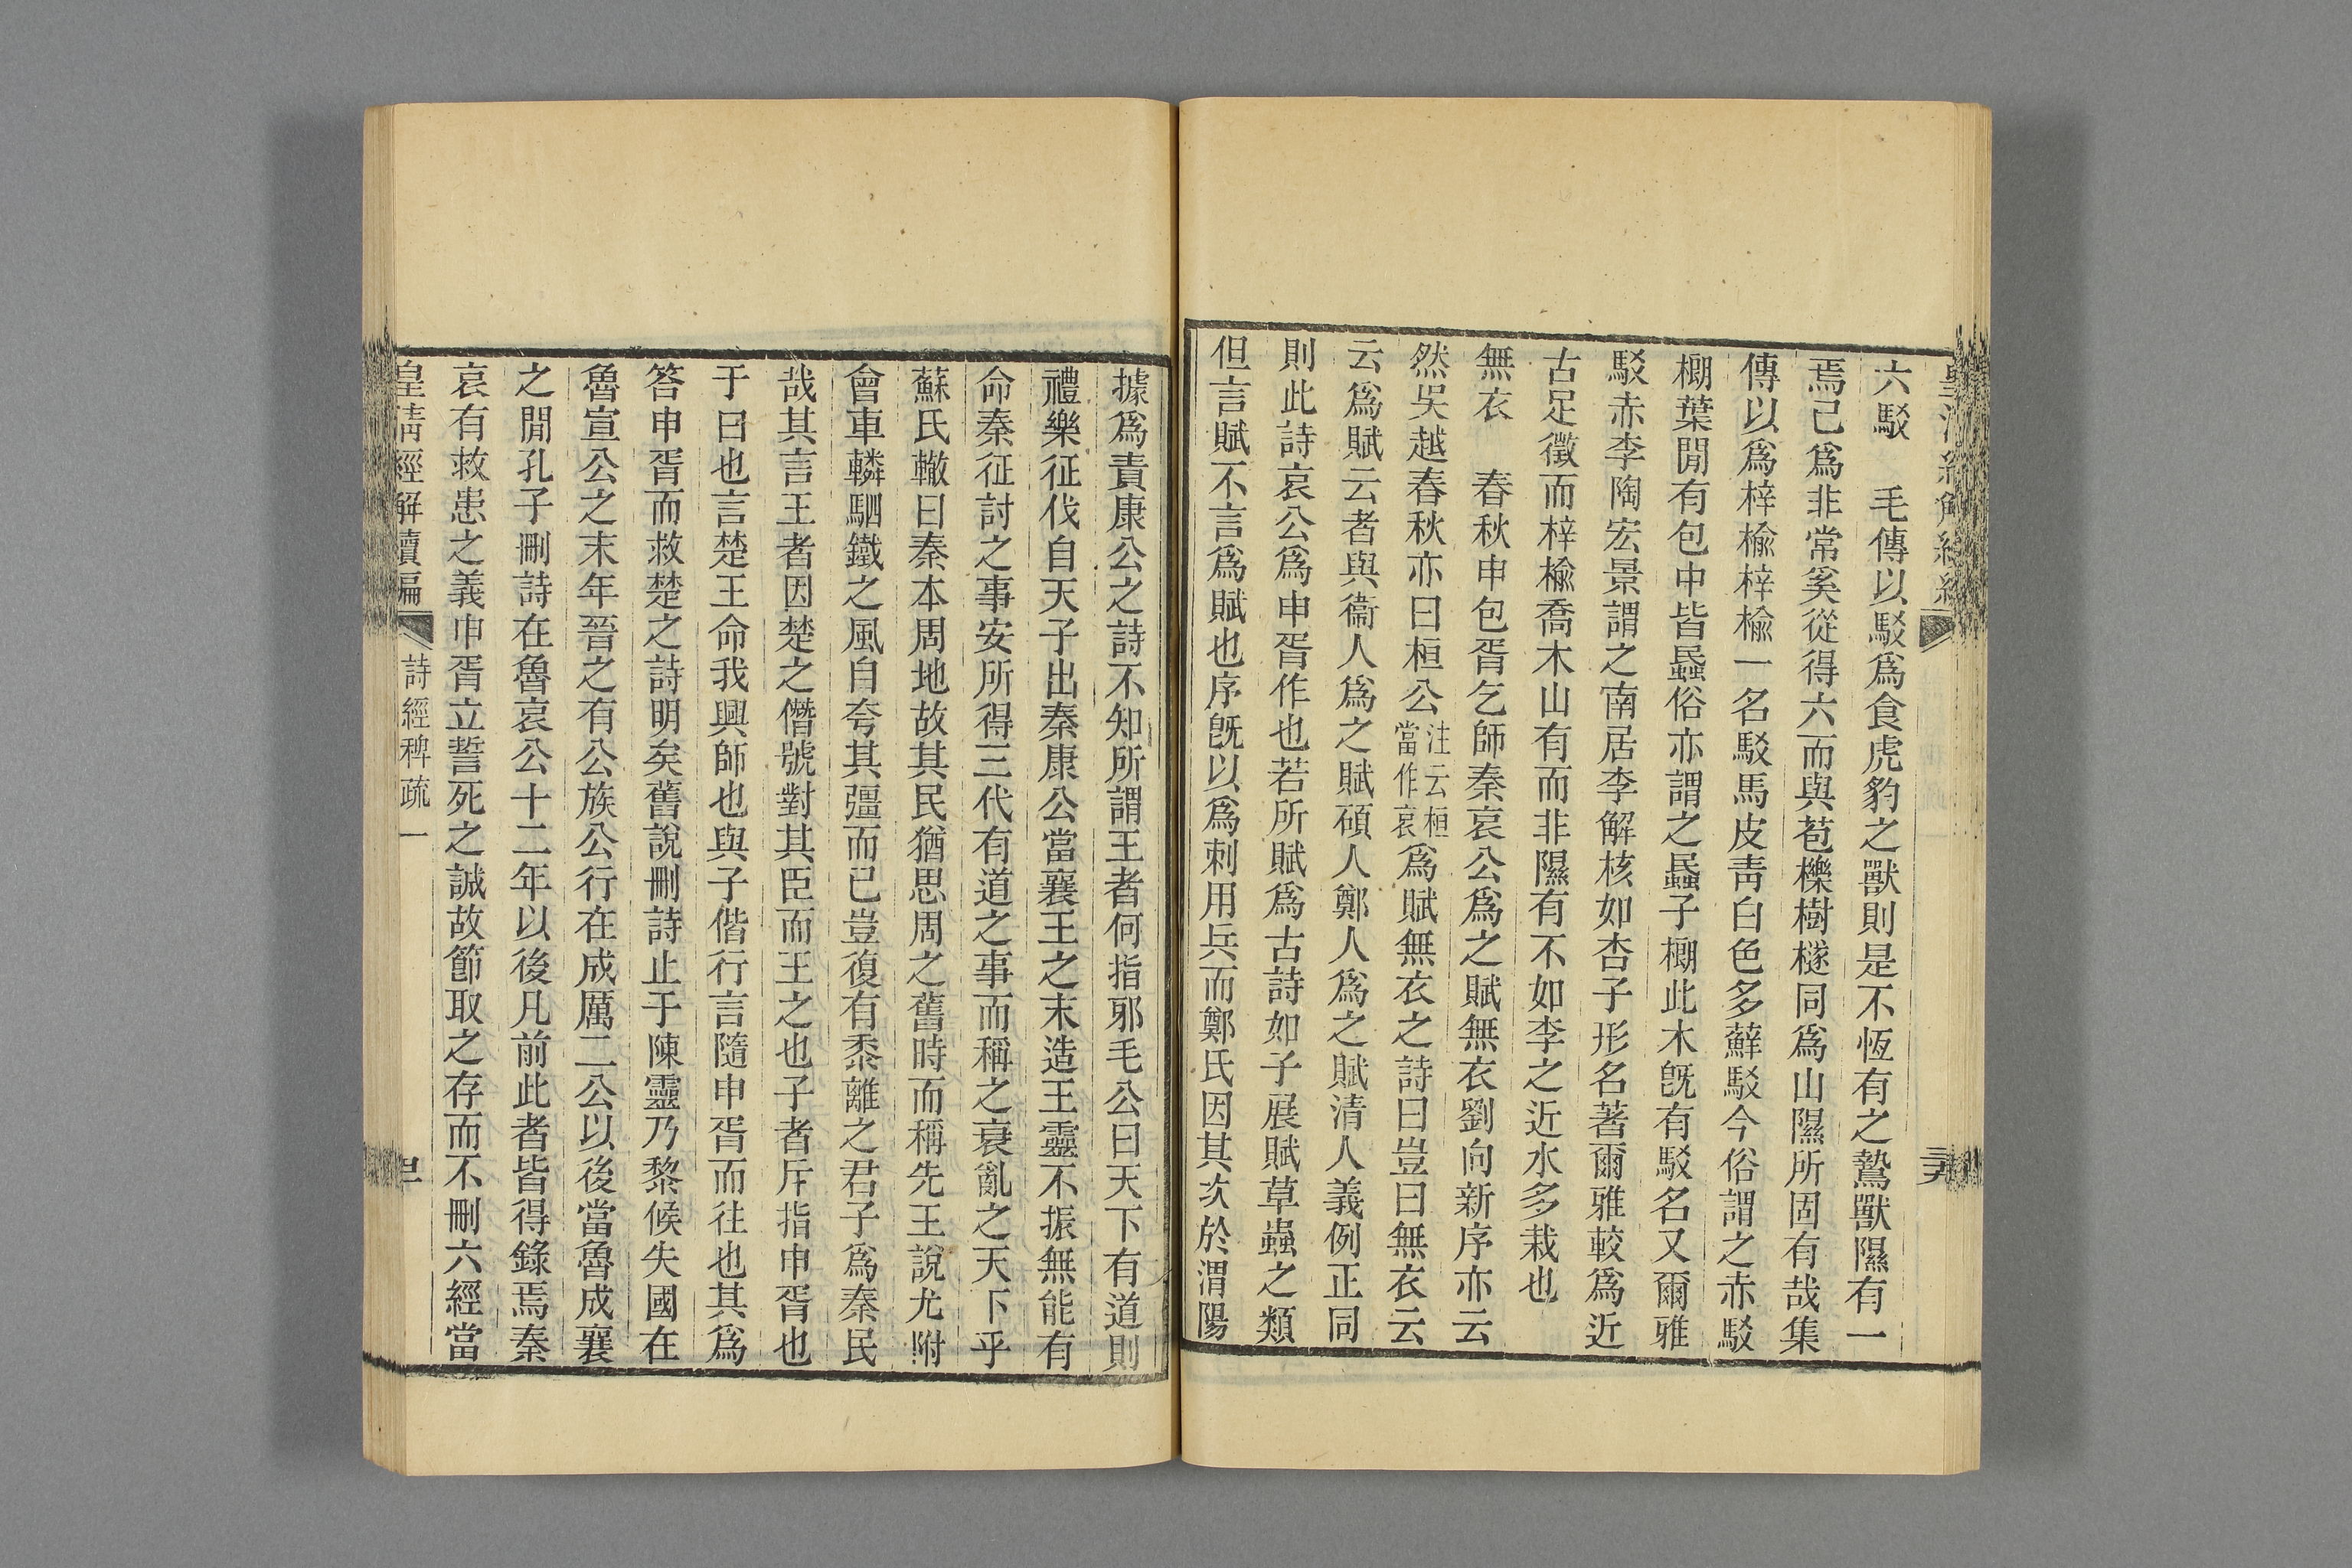 六駁　毛傳以駁爲食虎豹之獸則是不恆有之鷙獸隰有一
焉已爲非常奚從得六而與苞櫟樹檖同爲山隰所固有哉集
傳以爲梓楡梓楡一名駁馬皮靑白色多蘚駁今俗謂之赤駁
棚葉閒有包中皆蟁俗亦謂之蟁子棚此木旣有駁名又爾雅
駁赤李陶宏景謂之南居李解核如杏子形名著爾雅較爲近
古足徵而梓楡喬木山有而非隰有不如李之近水多栽也
無衣　春秋申包胥乞師秦哀公爲之賦無衣劉向新序亦云
然吳越春秋亦曰桓公注云桓當作哀爲賦無衣之詩曰豈曰無衣云
云爲賦云者與衞人爲之賦碩人鄭人爲之賦清人義例正同
則此詩哀公爲申胥作也若所賦爲古詩如子展賦草蟲之類
但言賦不言爲賦也序旣以爲刺用兵而鄭氏因其次於渭陽
據爲責康公之詩不知所謂王者何指邪毛公曰天下有道則
禮樂征伐自天子出秦康公當襄王之末造王靈不振無能有
命秦征討之事安所得三代有道之事而稱之衰亂之天下乎
蘇氏轍曰秦本周地故其民猶思周之舊時而稱先王說尤附
會車轔駟鐵之風自夸其彊而已豈復有黍離之君子爲秦民
哉其言王者因楚之僭號對其臣而王之也子者斥指申胥也
于曰也言楚王命我興師也與子偕行言隨申胥而往也其爲
答申胥而救楚之詩明矣舊說刪詩止于陳靈乃黎候失國在
魯宣公之末年晉之有公族公行在成厲二公以後當魯成襄
之閒孔子刪詩在魯哀公十二年以後凡前此者皆得錄焉秦
哀有救患之義申胥立誓死之誠故節取之存而不刪六經當
皇淸經解續編　詩經稗疏一